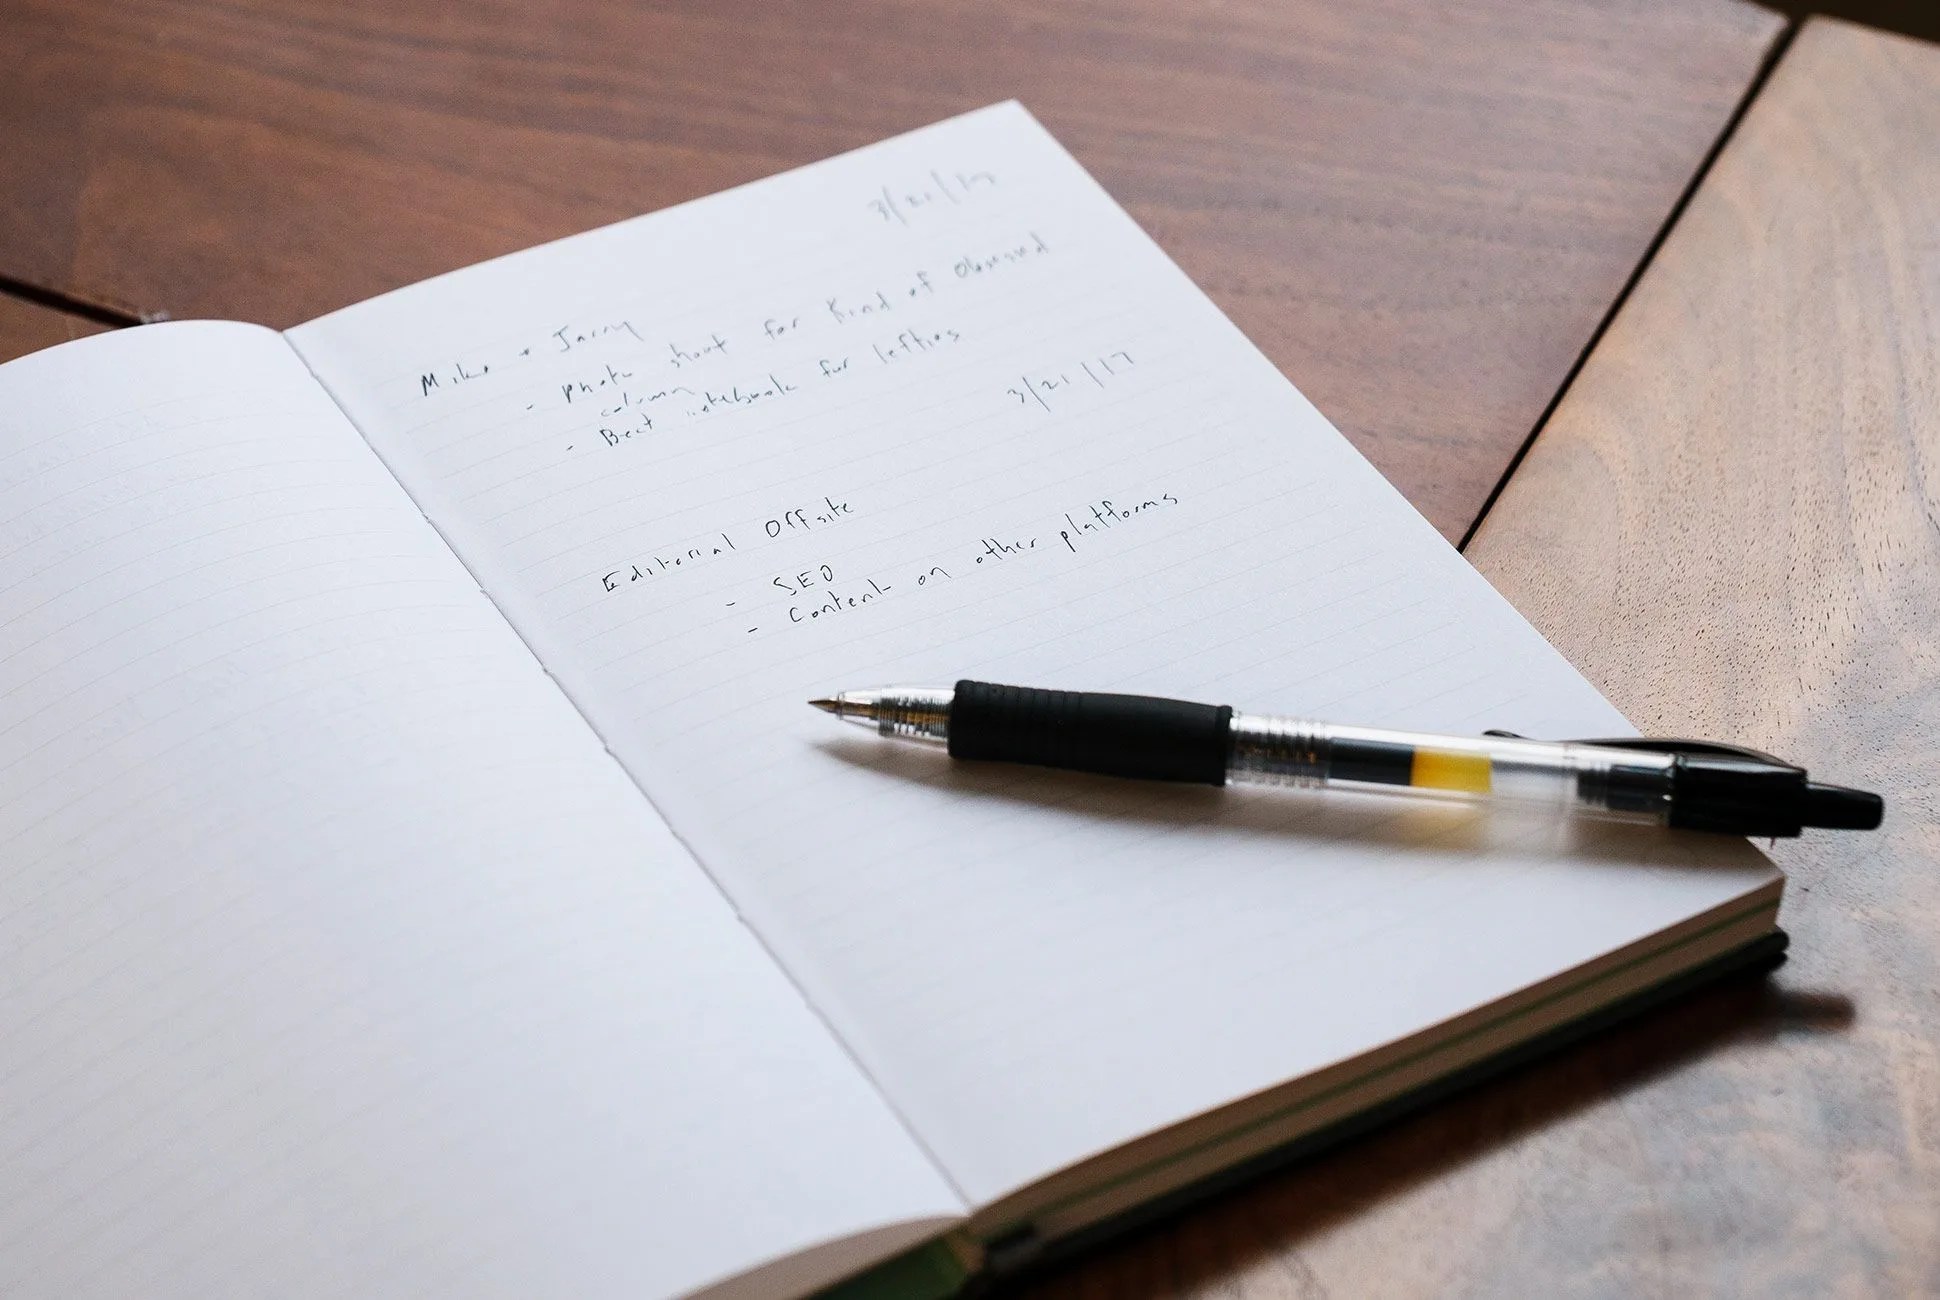 3/21/17
Mike + Jarry
- Photo shoot for Kind of Obsessed
column
- Best notebook for lefties
3/21/17
Editorial Offsite
- SEO
- Content on other platforms